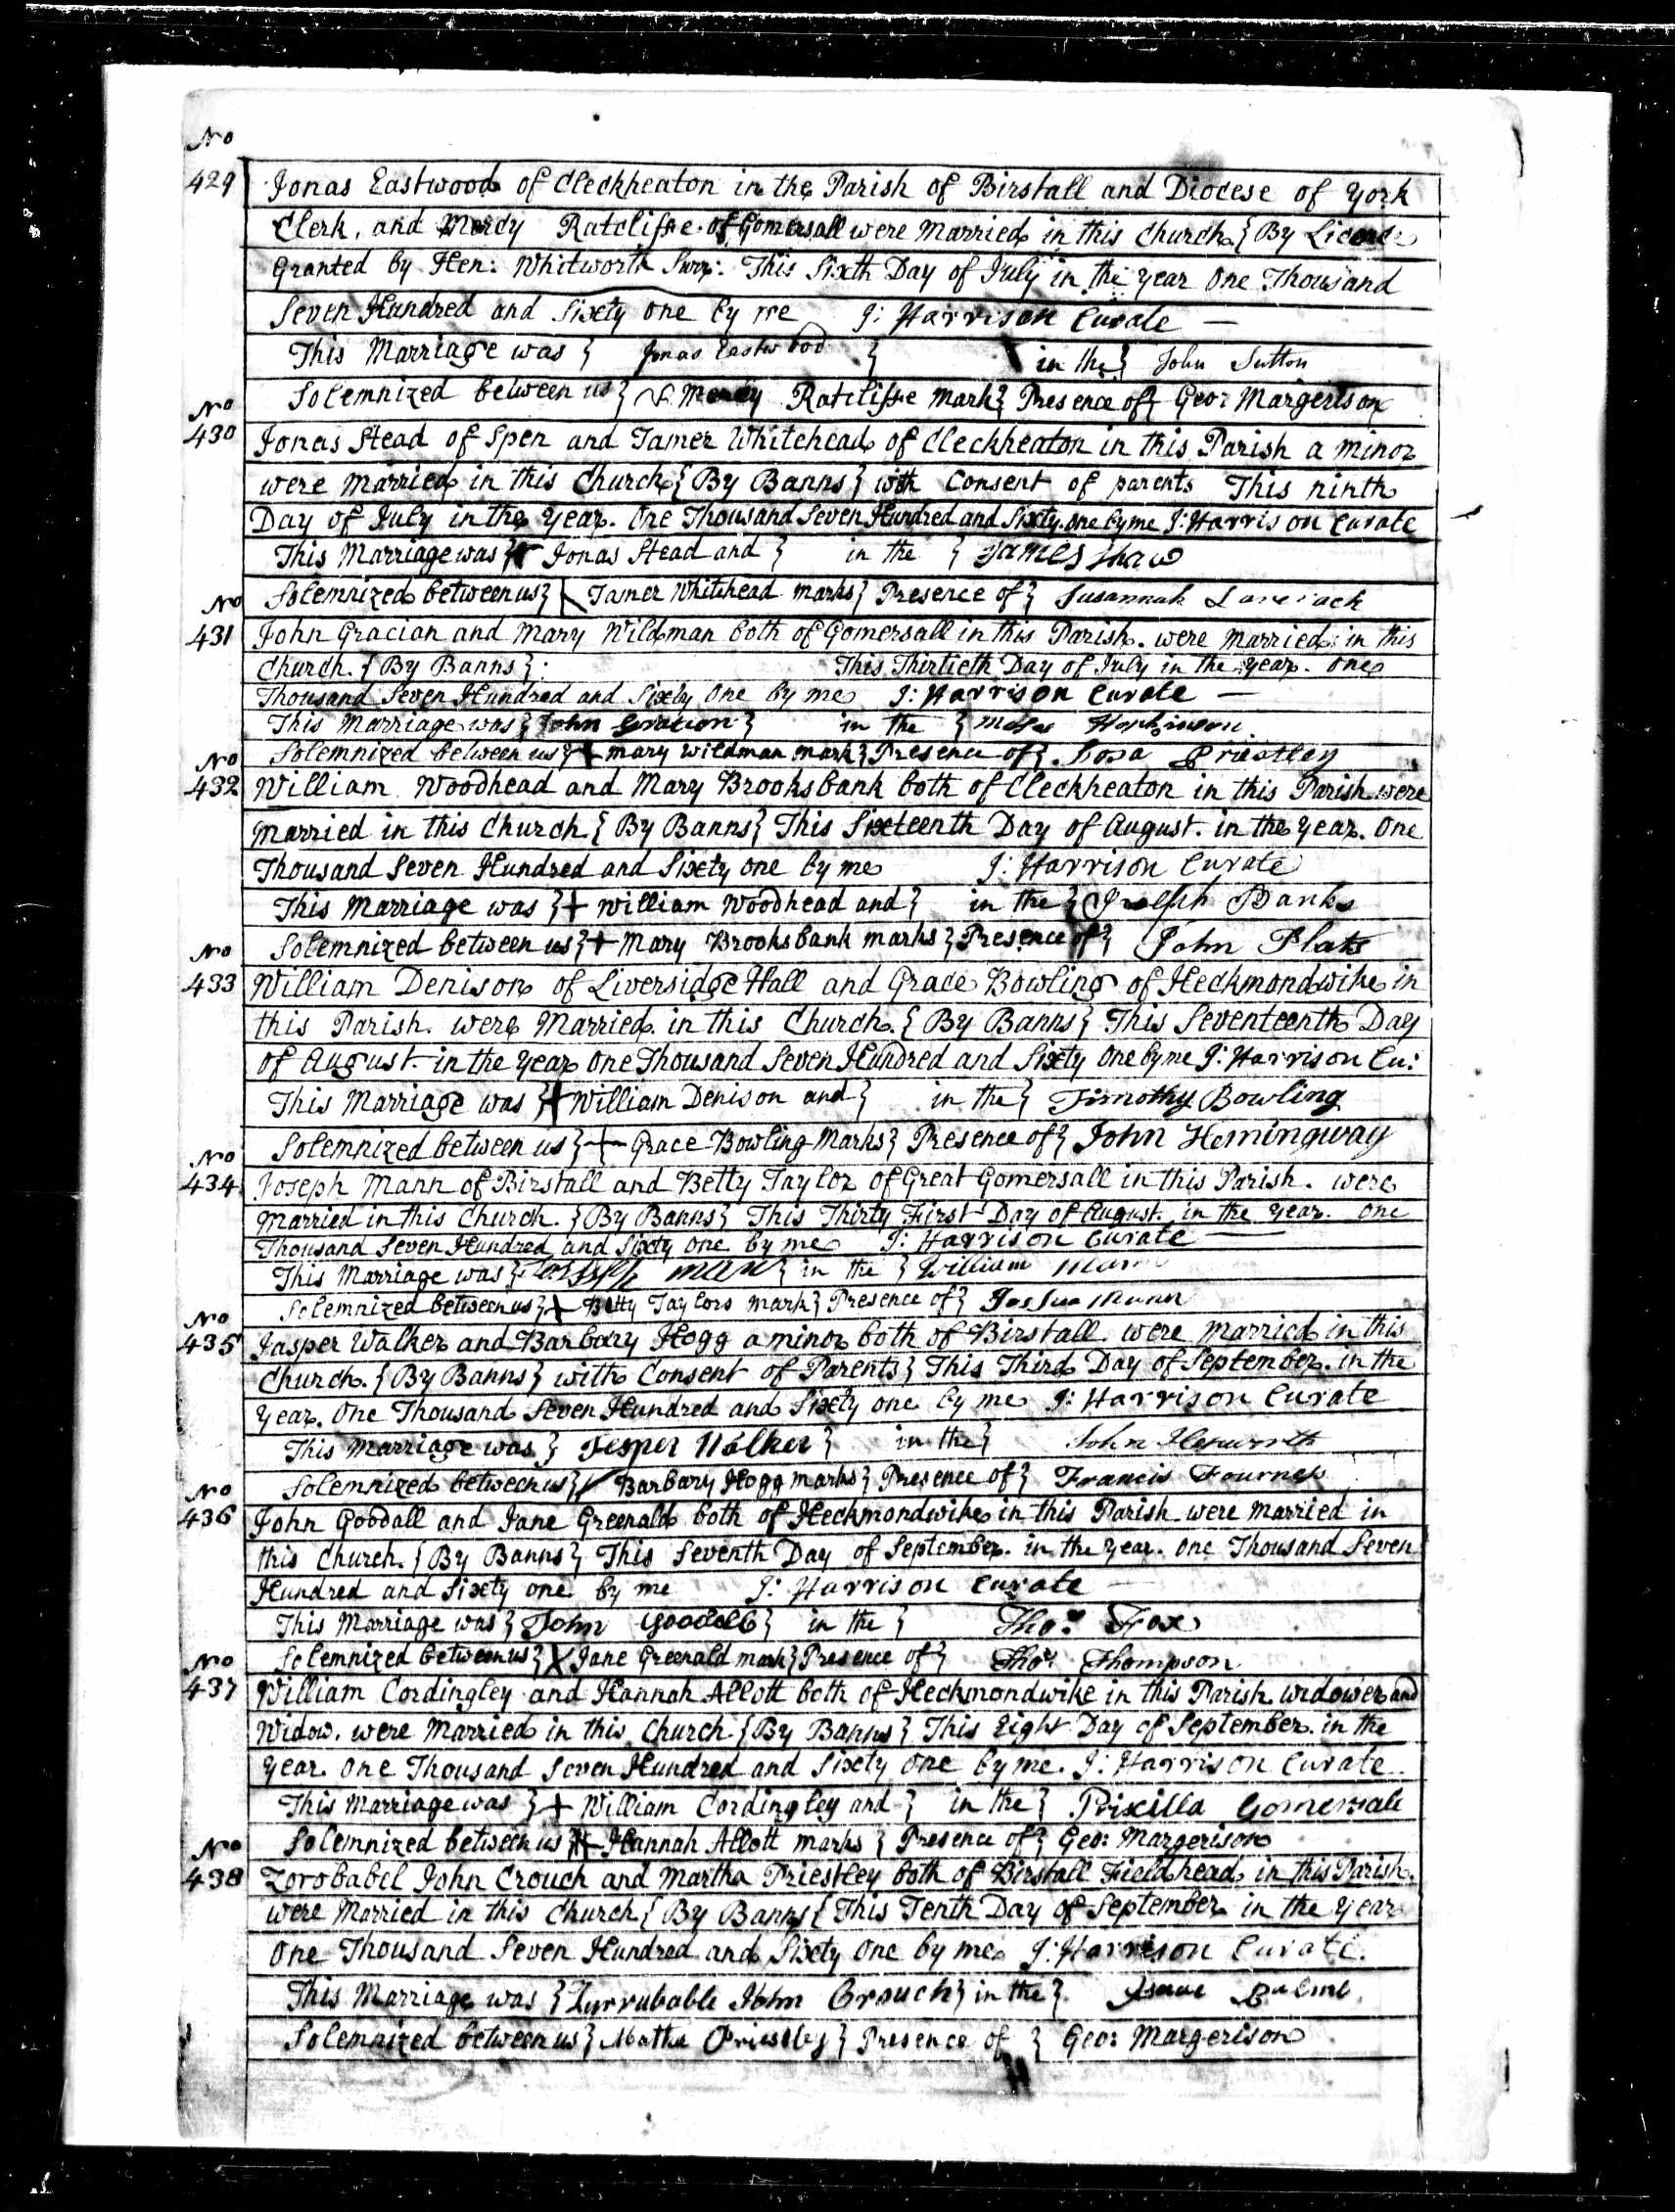 No
429 Jonas Eastwood of Cleckheaton in the Parish of Birstall and Diocese of York
Clerk, and Mercy Ratcliffe of Gomersall were Married in this Church { By Licence
Granted by Hen: Whitworth Surr: This Sixth Day of July in the year One Thousand
Seven Hundred and Sixty one by me J: Harrison Curate —
This Marriage was } Jonas Eastwood } in the } John Sutton
Solemnized between us } Mercy Ratcliffe mark } Presence of } Geo: Margerison
No
430 Jonas Stead of Spen and Tamer Whitehead of Cleckheaton in this Parish a minor
were Married in this Church { By Banns } with Consent of parents This ninth
Day of July in the year. One Thousand Seven Hundred and Sixty one by me J: Harrison Curate
This Marriage was } Jonas Stead and } in the } James Shaw
Solemnized between us } \ Tamer Whitehead marks } Presence of } Susannah
No
431 John Gracian and Mary Wildman both of Gomersall in this Parish. were Married in this
Church. { By Banns } This Thirtieth Day of July in the year. One
Thousand Seven Hundred and Sixty One by me J: Harrison Curate —
This Marriage was } John Gration } in the } Moses Hopkinson
Solemnized between us } + Mary Wildman mark } Presence of } Priestley
No
432 William Woodhead and Mary Brooksbank both of Cleckheaton in this Parish were
Married in this Church { By Banns } This Sixteenth Day of August. in the year. One
Thousand Seven Hundred and Sixty one by me J: Harrison Curate
This Marriage was } + William Woodhead and } in the } Joseph Banks
Solemnized between us } + Mary Brooksbank marks } Presence of } John Plats
No
433 William Denison of Liversidge Hall and Grace Bowling of Heckmondwike in
this Parish. were Married in this Church. { By Banns } This Seventeenth Day
of August. in the year One Thousand Seven Hundred and Sixty One by me J: Harrison Cu:
This Marriage was } + William Denison and } in the } Timothy Bowling
Solemnized between us } + Grace Bowling Marks } Presence of } John Hemingway
No
434 Joseph Mann of Birstall and Betty Taylor of Great Gomersall in this Parish. were
Married in this Church. { By Banns } This Thirty First Day of August. in the year. One
Thousand Seven Hundred and Sixty one by me J: Harrison Curate —
This Marriage was } Joseph man } in the } William Mann
Solemnized between us } + Betty Taylors mark } Presence of } Joshua Mann
No
435 Jasper Walker and Barbary Hogg a minor both of Birstall. were Married in this
Church. { By Banns } with Consent of Parents } This Third Day of September. in the
year. One Thousand Seven Hundred and Sixty one by me J: Harrison Curate
This Marriage was } Jesper Walker } in the } John Hepworth
Solemnized between us } / Barbary Hogg marks } Presence of } Francis Fourness
No
436 John Goodall and Jane Greenald both of Heckmondwike in this Parish were Married in
this Church. { By Banns } This Seventh Day of September. in the year. One Thousand Seven
Hundred and Sixty one by me J: Harrison Curate —
This Marriage was } John Goodall } in the } Tho.s Fox
Solemnized between us } X Jane Greenald mark } Presence of } Tho.s Thompson
No
437 William Cordingley and Hannah Allott both of Heckmondwike in this Parish widower and
Widow. were Married in this Church. { By Banns } This Eight Day of September. in the
year. One Thousand Seven Hundred and Sixty One by me. J: Harrison Curate
This Marriage was } + William Cordingley and } in the } Priscilla Gomersale
Solemnized between us } + Hannah Allott marks } Presence of } Geo: Margerison
No
438 Zorobabel John Crouch and Martha Priestley both of Birstall Fieldhead in this Parish.
were Married in this Church { By Banns { This Tenth Day of September in the year
One Thousand Seven Hundred and Sixty One by me J: Harrison Curate.
This Marriage was } Zurrubable John Crouch } in the } Isaac
Solemnized between us } Matha Priestley } Presence of } Geo: Margerison